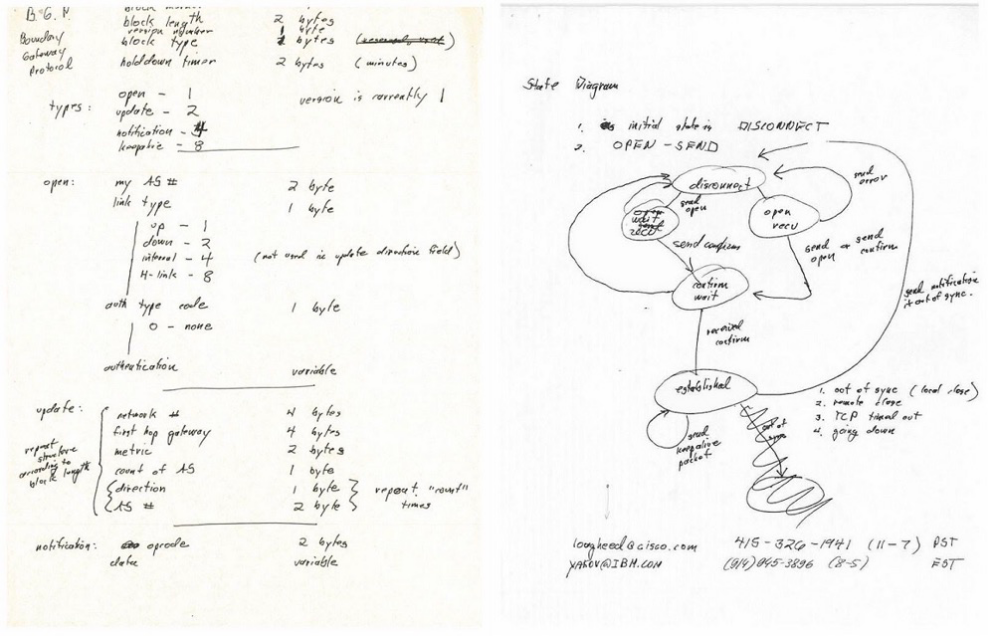 B.G.P.
Boundary
Gateway
Protocol
block marker
block length 2 bytes
version number 1 byte
block type 1 bytes
holddown timer 2 bytes (minutes)
types:
open - 1 version is currently 1
update - 2
notification - 4
keepalive - 8
open:
my AS # 2 byte
link type 1 byte
up - 1
down - 2
internal - 4 (not used in update direction field)
H-link - 8
auth type code 1 byte
0 - none
authentication variable
update:
repeat
structure
according to
block length
network # 4 bytes
first hop gateway 4 bytes
metric 2 bytes
count of AS 1 byte
direction 1 byte repeat "count"
AS # 2 byte times
notification: opcode 2 bytes
data variable
State Diagram
1. initial state is DISCONNECT
2. OPEN-SEND
disconnect
send
error
send
open
open
recv
wait
recv
send confirm
send or send
open confirm
confirm
wait
send notification
if out of sync.
received
confirm
established
1. out of sync (local close)
2. remote close
3. TCP timed out
4. going down
out of
sync
send
keepalive
packet
lougheed@cisco.com 415-326-1941 (11-7) PST
YAKOV@IBM.COM (914)945-3896 (8-5) EST